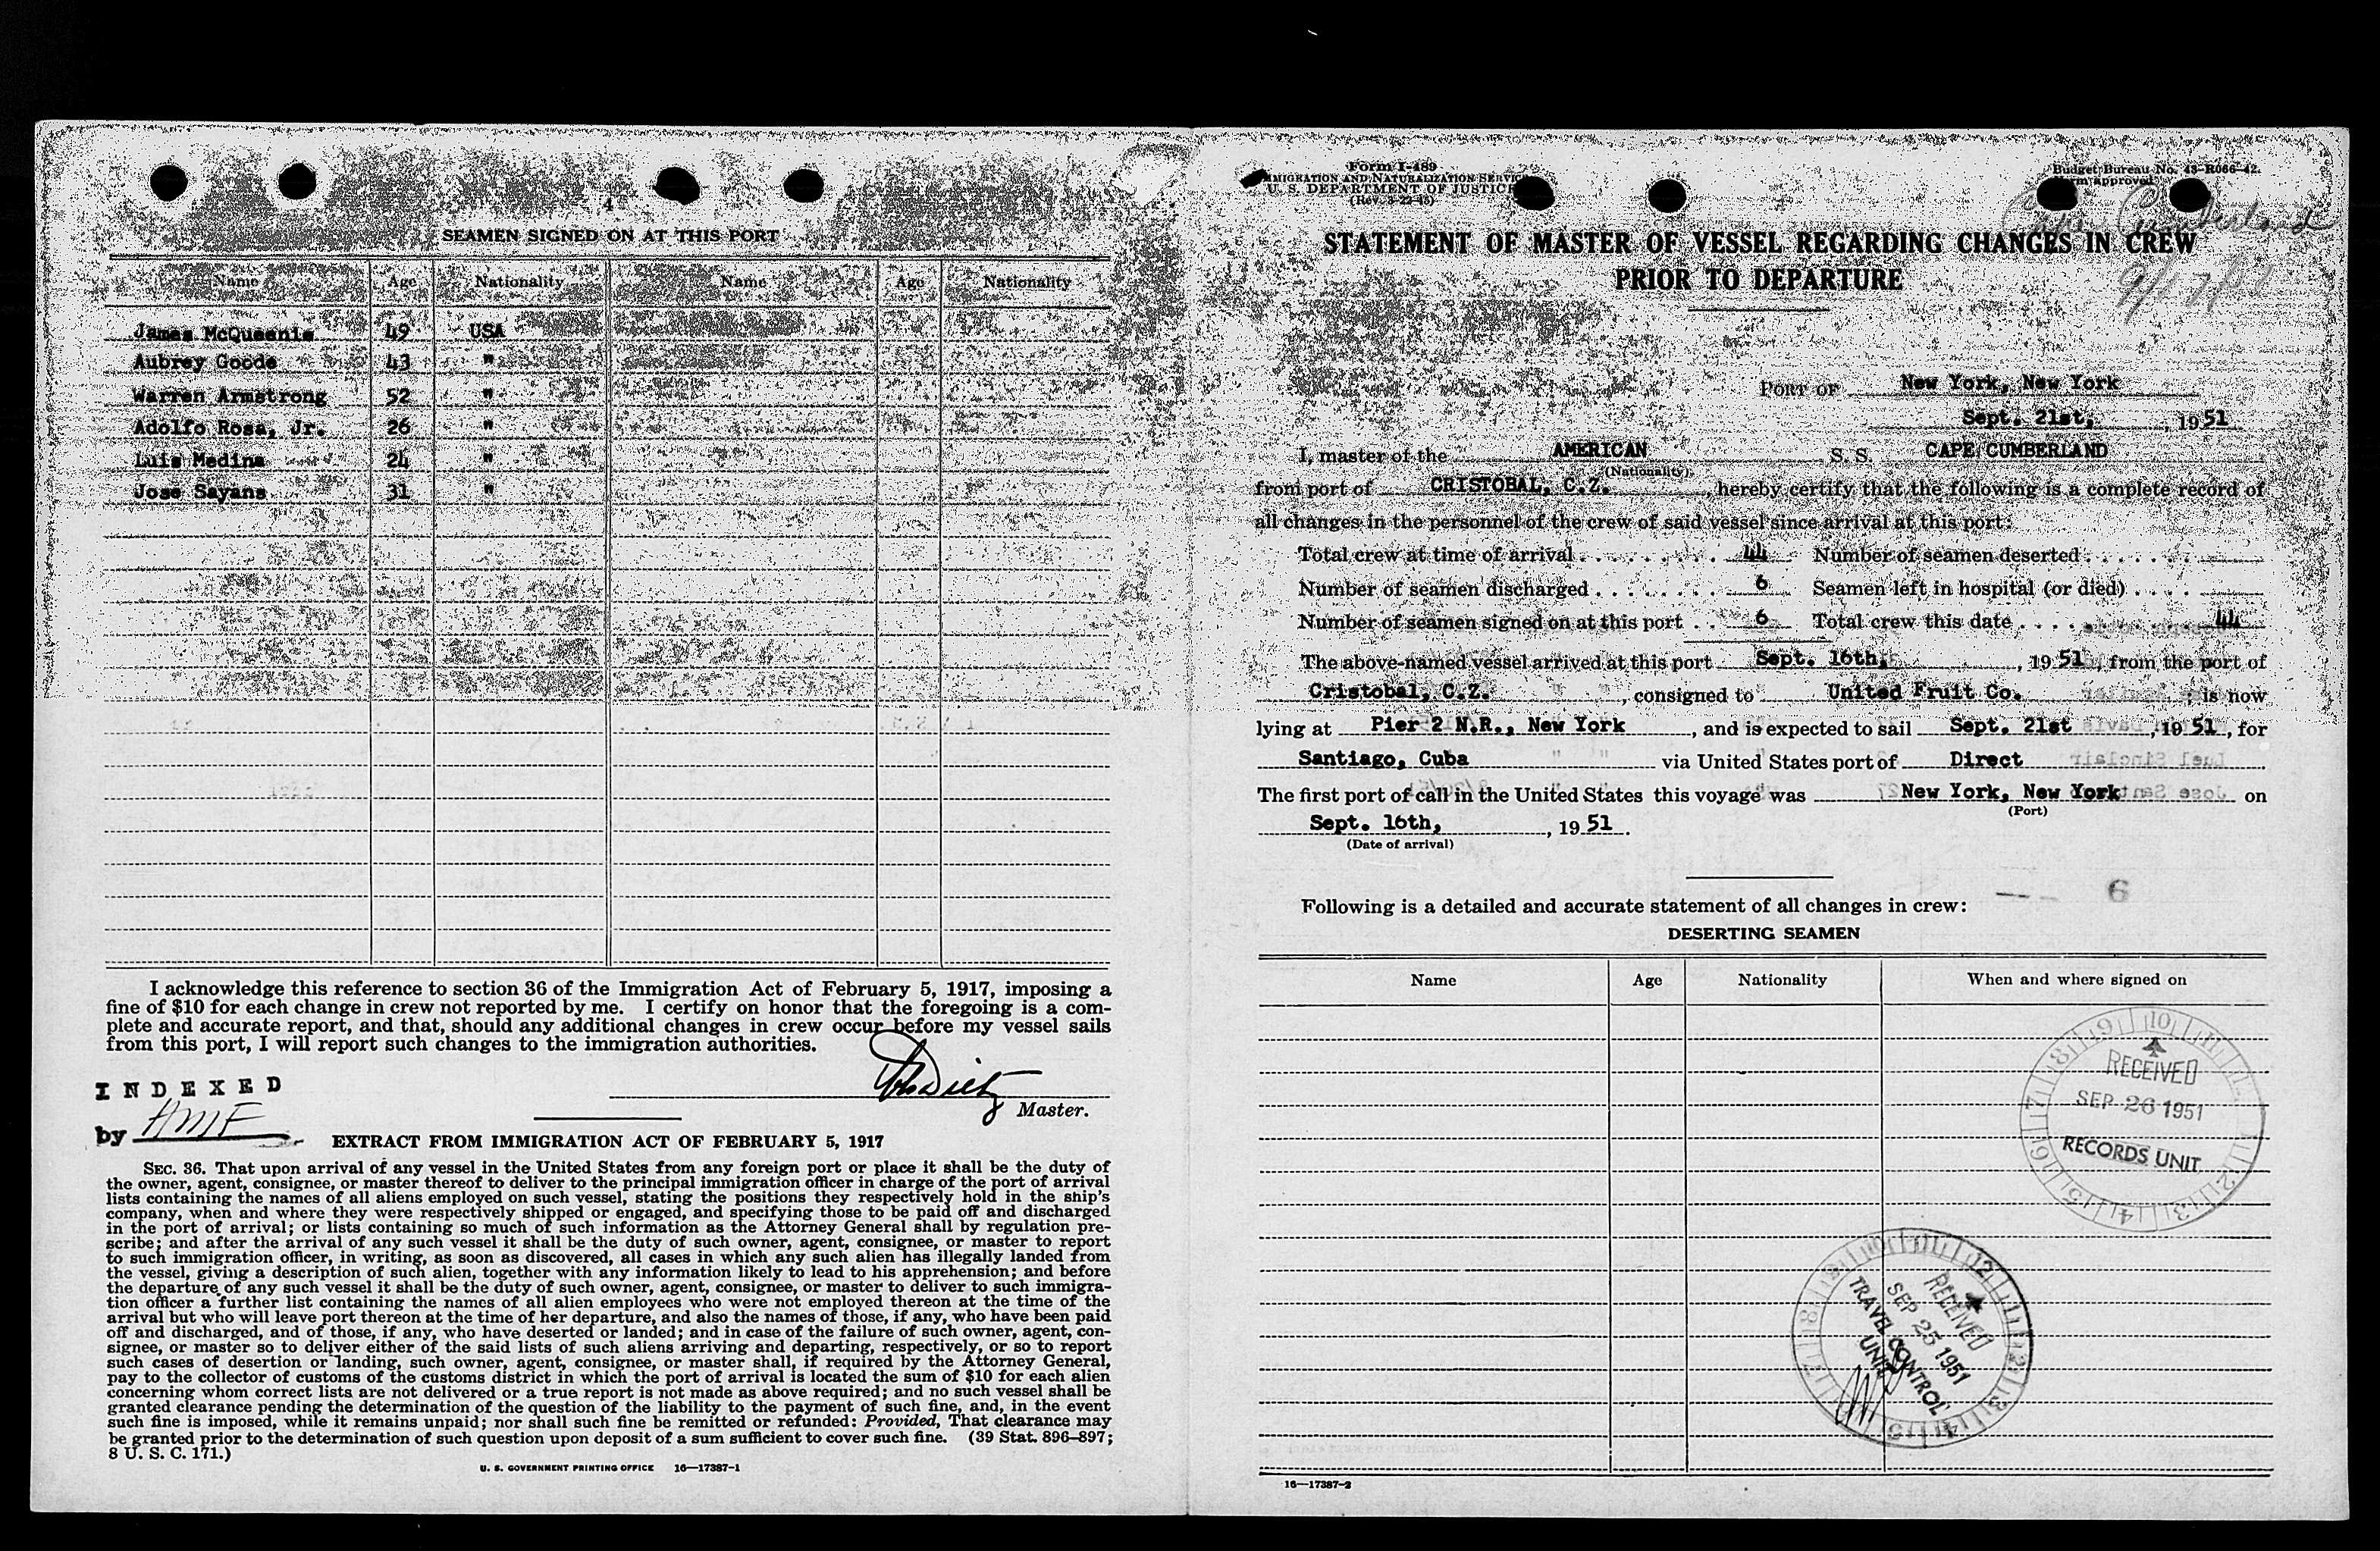 4
SEAMEN SIGNED ON AT THIS PORT
Name Age Nationality Name Age Nationality
James McQueenie 49 USA
Aubrey Goode 43 "
Warren Armstrong 52 "
Adolfo Rosa, Jr. 26 "
Luis Medina 24 "
Jose Sayans 31 "
I acknowledge this reference to section 36 of the Immigration Act of February 5, 1917, imposing a
fine of $10 for each change in crew not reported by me. I certify on honor that the foregoing is a com-
plete and accurate report, and that, should any additional changes in crew occur before my vessel sails
from this port, I will report such changes to the immigration authorities.
INDEXED
by HMF
Master.
EXTRACT FROM IMMIGRATION ACT OF FEBRUARY 5, 1917
SEC. 36. That upon arrival of any vessel in the United States from any foreign port or place it shall be the duty of
the owner, agent, consignee, or master thereof to deliver to the principal immigration officer in charge of the port of arrival
lists containing the names of all aliens employed on such vessel, stating the positions they respectively hold in the ship's
company, when and where they were respectively shipped or engaged, and specifying those to be paid off and discharged
in the port of arrival; or lists containing so much of such information as the Attorney General shall by regulation pre-
scribe; and after the arrival of any such vessel it shall be the duty of such owner, agent, consignee, or master to report
to such immigration officer, in writing, as soon as discovered, all cases in which any such alien has illegally landed from
the vessel, giving a description of such alien, together with any information likely to lead to his apprehension; and before
the departure of any such vessel it shall be the duty of such owner, agent, consignee, or master to deliver to such immigra-
tion officer a further list containing the names of all alien employees who were not employed thereon at the time of the
arrival but who will leave port thereon at the time of her departure, and also the names of those, if any, who have been paid
off and discharged, and of those, if any, who have deserted or landed; and in case of the failure of such owner, agent, con-
signee, or master so to deliver either of the said lists of such aliens arriving and departing, respectively, or so to report
such cases of desertion or landing, such owner, agent, consignee, or master shall, if required by the Attorney General,
pay to the collector of customs of the customs district in which the port of arrival is located the sum of $10 for each alien
concerning whom correct lists are not delivered or a true report is not made as above required; and no such vessel shall be
granted clearance pending the determination of the question of the liability to the payment of such fine, and, in the event
such fine is imposed, while it remains unpaid; nor shall such fine be remitted or refunded: Provided, That clearance may
be granted prior to the determination of such question upon deposit of a sum sufficient to cover such fine. (39 Stat. 896–897;
8 U. S. C. 171.)
U. S. GOVERNMENT PRINTING OFFICE 16—17387-1
Form I-489
IMMIGRATION AND NATURALIZATION SERVICE
U. S. DEPARTMENT OF JUSTICE
(Rev. 3-22-45)
Budget Bureau No. 43-R066-42.
Form approved
Cape Cumberland
STATEMENT OF MASTER OF VESSEL REGARDING CHANGES IN CREW
PRIOR TO DEPARTURE
PORT OF New York, New York
Sept. 21st, , 1951
I, master of the AMERICAN S. S. CAPE CUMBERLAND
(Nationality)
from port of CRISTOBAL, C.Z. , hereby certify that the following is a complete record of
all changes in the personnel of the crew of said vessel since arrival at this port:
Total crew at time of arrival 44 Number of seamen deserted
Number of seamen discharged 6 Seamen left in hospital (or died)
Number of seamen signed on at this port 6 Total crew this date 44
The above-named vessel arrived at this port Sept. 16th, , 1951, from the port of
Cristobal, C.Z. , consigned to United Fruit Co. ; is now
lying at Pier 2 N.R., New York , and is expected to sail Sept. 21st , 1951, for
Santiago, Cuba via United States port of Direct
The first port of call in the United States this voyage was New York, New York on
(Port)
Sept. 16th, , 1951.
(Date of arrival)
6
Following is a detailed and accurate statement of all changes in crew:
DESERTING SEAMEN
Name Age Nationality When and where signed on
RECEIVED
SEP 26 1951
RECORDS UNIT
RECEIVED
SEP 25 1951
TRAVEL CONTROL
UNIT
16—17387-2